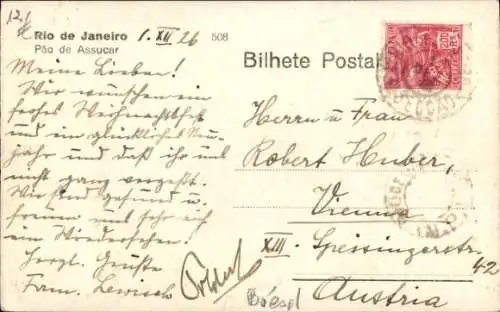 12.
Rio de Janeiro 1. XII 26 508
Pão de Assucar
Bilhete Postal
Meine Lieben!
Wir wünschen ein
frohes Weihnachtsfest
und ein glückliches Neu-
jahr und daß ihr uns
nicht ganz vergeßt.
Wir sind gesund u.
freuen uns sehr auf
ein Wiedersehen!
Herzl. Grüße
Fam.
Herrn u Frau
Robert Huber,
Vienna
XIII. Speisingerstr.
42
Austria
Brasil